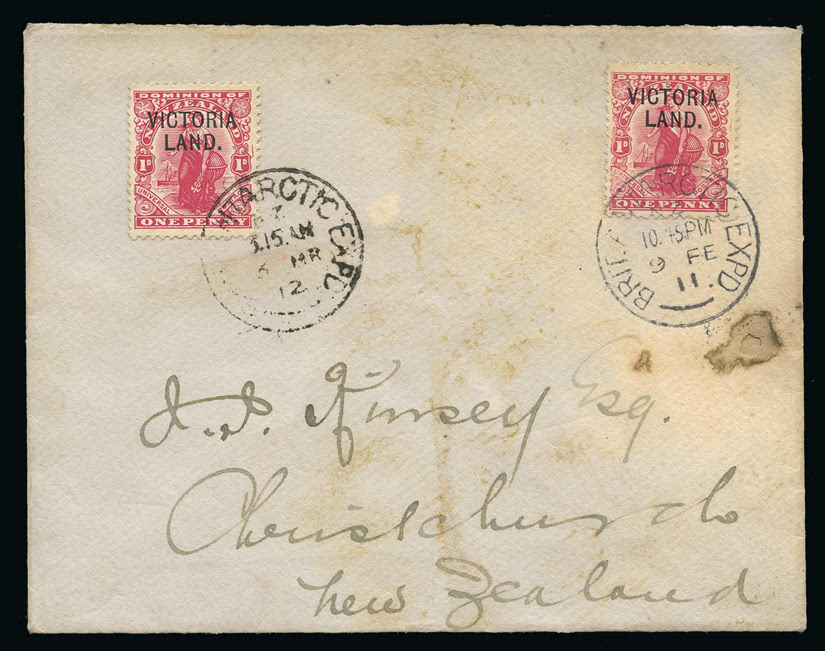 DOMINION OF
NEW ZEALAND
VICTORIA
LAND.
1D 1D
UNIVERSAL
ONE PENNY
DOMINION OF
NEW ZEALAND
VICTORIA
LAND.
1D 1D
ONE PENNY
ANTARCTIC EXPD
3.15.AM
MR
12
BRIT. ANTARCTIC EXPD
10.45PM
9 FE
11.
J. J. Kinsey Esq.
Christchurch
New Zealand